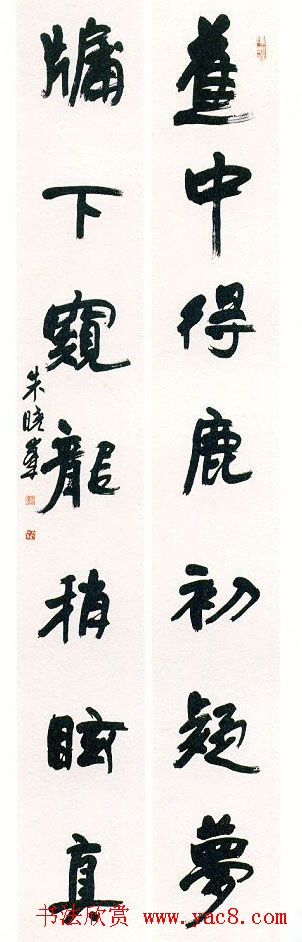 蕉中得鹿初疑夢
牖下窺龍稍眩真
朱曉峯
书法欣赏 www.yac8.com